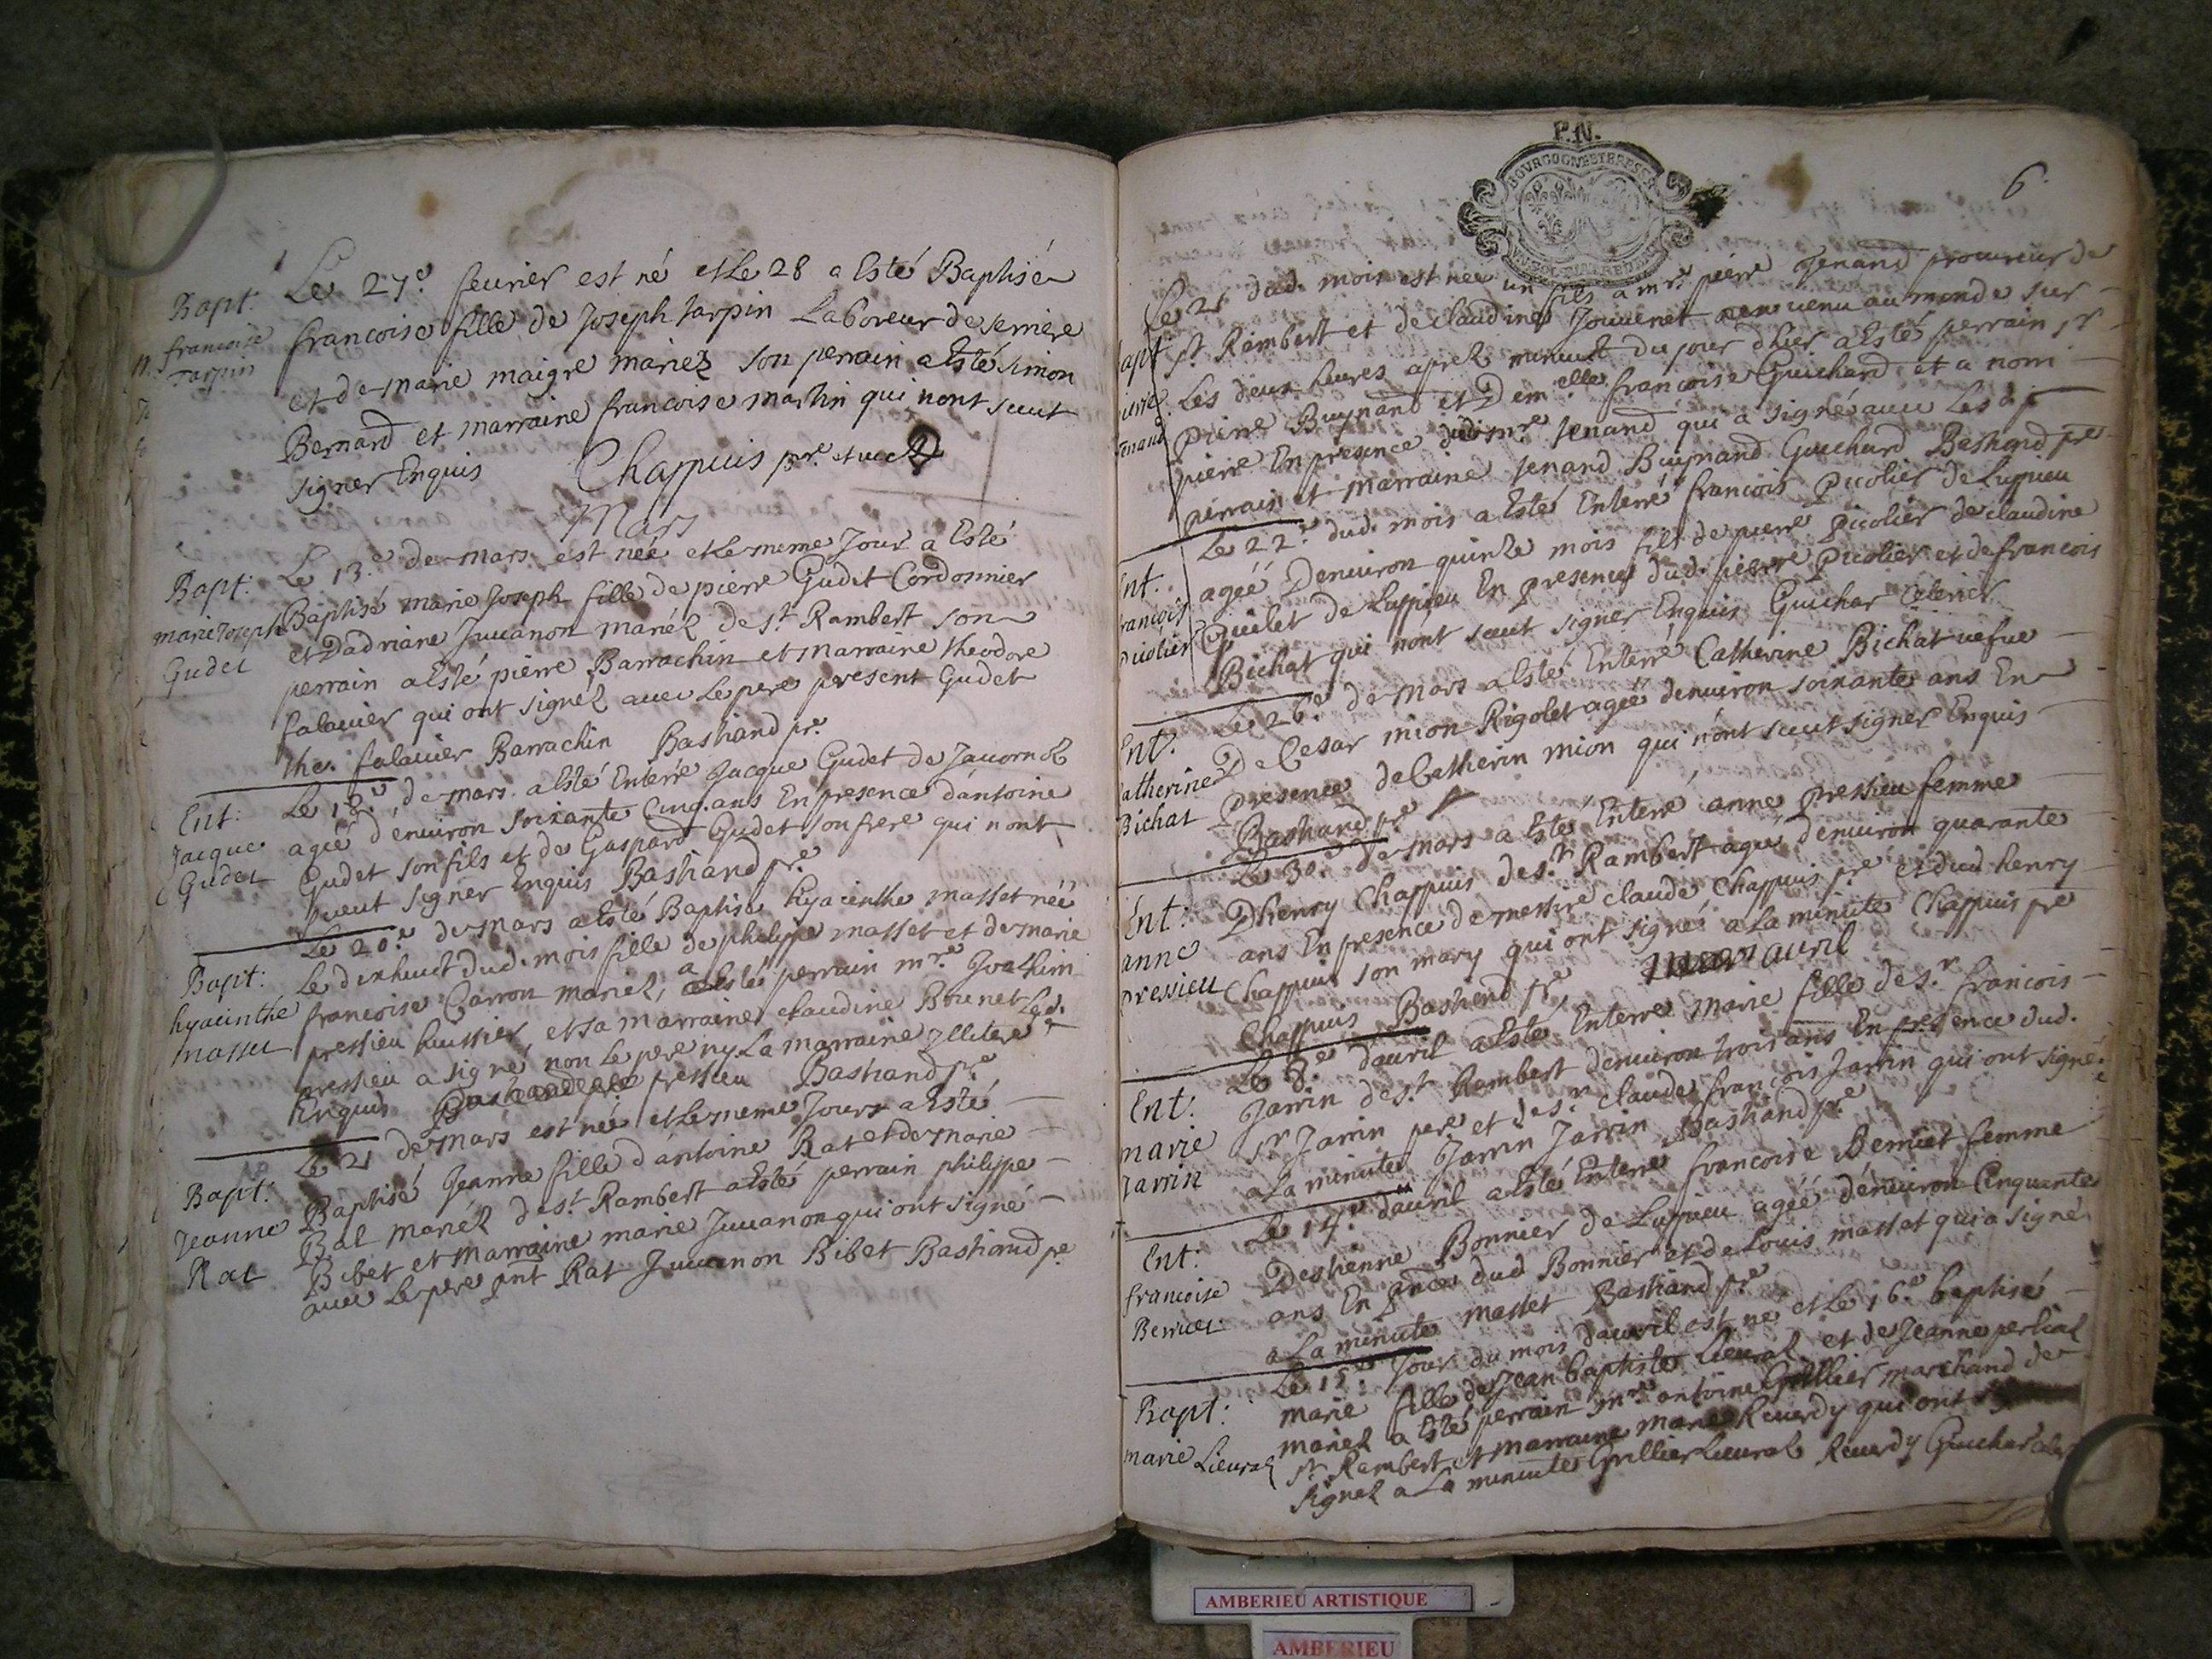 Bapt:
francoise
Tarpin
Le 27.e feurier est né et Le 28 a Esté Baptisée
francoise fille de Joseph tarpin Laboreur de serriere
et de marie maigre mariez son perrain a Esté simon
Bernard et marraine francoise martin qui nont sceut
signer Enquis Chappuis pre.
Mars
Bapt:
marie Joseph
Gudet
Le 13.e de mars est née et Le meme Jour a Esté
Baptisé marie Joseph fille de pierre Gudet Cordonnier
et Dadriane Juuanon mariéz de st Rambert son
perrain a Esté pierre Barrachin et marraine theodore
falauier qui ont signéz auec Le pere present Gudet
the. falauier Barrachin Bashand pr.
Ent:
Jacque
Gudet
Le 18.e de mars a Esté Enterré Jacque Gudet de
agée d'enuiron soixante Cinq ans En presence d'antoine
Gudet son fils et de Gaspard Gudet son frere qui n ont
sceut signer Enquis Bashand pre
Bapt:
hyacinthe
masset
Le 20.e de mars a Esté Baptisé hyacinthe masset née
Le dixhuict dud. mois fille de philippe masset et de marie
francoise Carron mariéz, a Esté perrain mre. Joachim
pressieu huissier, et sa marraine claudine Brunet Led.
pressieu a signé non Le pere ny La marraine Illitere
Enquis pressieu Bashand pre
Bapt:
Jeanne
Rat
Le 21 de mars est née et Le meme Jour a Esté
Baptisé Jeanne fille d'antoine Rat et de marie
Bal mariéz de st. Rambert a Esté perrain philippe
Bibet et marraine marie Juuanon qui ont signé
auec Le pere pnt Rat Juuanon Bibet Bashand pr.
P.N.
6
Le 21 dud. mois est née un fils a mre pierre Jenand procureur de
st Rambert et de claudine Jouuenet venu au monde sur
Les deux heures apres minuit du jour d'hier a Esté perrain sr
pierre Buynand et Dem.elle francoise Guichard et a nom
pierre En presence dud. mre Jenand qui a signé auec Les d
perrain et marraine Jenand Buynand Guichard Bashand pre
Ent.
francois
picolier
Le 22.e dud. mois a Esté Enterré francois picolier de Luppieu
agéé Denuiron quinze mois fils de pierre picolier de claudine
de Luppieu En presence dud. pierre picolier et de francois
Bichat qui n'ont sceut signer Enquis Guichar
Ent.
Catherine
Bichat
Le 26.e de mars a Esté Enterré Catherine Bichat uefue
De Cesar mion Rigolet agée denuiron soixante ans En
presence de Catherin mion qui n'ont sceut signer Enquis
Bashand pre
Ent:
anne
pressieu
Le 30.e de mars a Esté Enterré anne pressieu femme
Dhenry Chappuis de st. Rambert agée denuiron quarante
ans En presence de messire claude Chappuis pre et dud henry
Chappuis son mary qui ont signé a La minute Chappuis pre
Chappuis Bashand pre
auril
Ent:
marie
Jarrin
Le 8.e dauril a Esté Enterré marie fille de s.r francois
Jarrin de st. Rambert denuiron trois ans En presence dud.
sr Jarrin pere et de s.r claude francois Jarrin qui ont signé
a La minute Jarrin Jarrin Bashand pre
Ent:
francoise
Berruet
Le 14.e dauril a Esté Enterré francoise Berruet femme
Destienne Bonnier de Luppieu agéé d'enuiron Cinquante
ans En pnce dud Bonnier et de Louis masset qui a signé
a La minute masset Bashand pre
Bapt:
marie Lieural
Le 15.e Jour du mois dauril est né et Le 16.e baptisé
marie fille de Jean baptiste Lieural et de Jeanne
mariéz a Esté perrain mre antoine Grillier marchand de
st. Rambert et marraine marie Reuerdy qui ont
signéz a La minute Grillier Lieural Reuerdy Guichar
AMBERIEU ARTISTIQUE
AMBERIEU